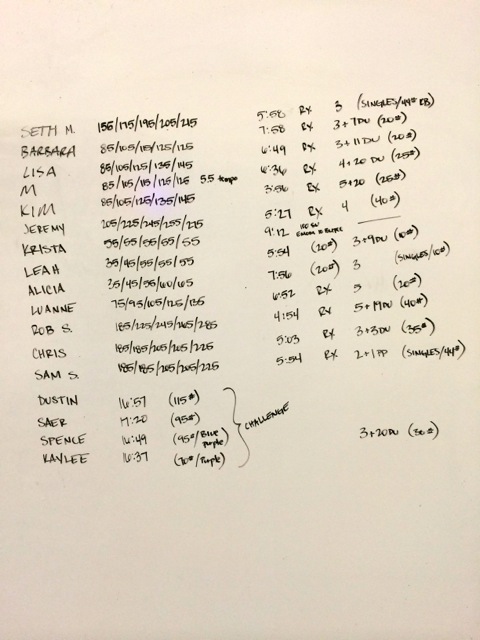 SETH M. 155/175/195/205/215 5:58 RX 3 (SINGLES/44# KB)
BARBARA 85/105/115/125/125 7:58 RX 3+7DU (20#)
LISA 85/105/125/135/145 6:49 RX 3+11DU (20#)
M 85/105/115/125/125 55 tempo 6:36 RX 4+20 DU (25#)
KIM 85/105/125/135/145 3:56 RX 5+20 (25#)
JEREMY 205/225/245/255/275 5:27 RX 4 (40#)
KRISTA 55/55/55/55/55 9:12
LEAH 35/45/55/55/55 5:54 (20#) 3+9DU (10#)
ALICIA 35/45/55/60/65 7:56 (20#) 3 (SINGLES/10#)
LUANNE 75/95/105/125/135 6:52 RX 5 (20#)
ROB S. 185/225/245/265/285 4:54 RX 5+19DU (40#)
CHRIS 185/185/205/205/225 5:03 RX 3+3DU (35#)
SAM S. 185/185/205/205/225 5:54 RX 2+1PP (SINGLES/44#)
DUSTIN 16:57 (115#)
SAER 17:20 (95#) CHALLENGE
SPENCE 16:49 (95#/Blue Purple) 3+20DU (30#)
KAYLEE 16:37 (70#/Purple)